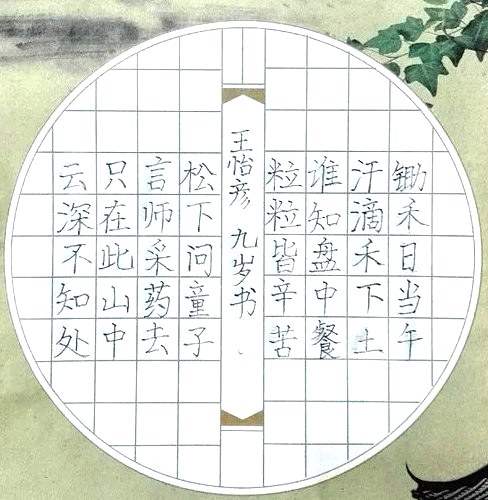 锄禾日当午
汗滴禾下土
谁知盘中餐
粒粒皆辛苦
王怡彦 九岁书
松下问童子
言师采药去
只在此山中
云深不知处